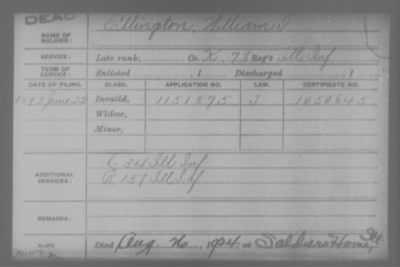 DEAD
NAME OF SOLDIER: Ellington, William
SERVICE: Late rank, Co. K, 78 Reg't Ill Inf
TERM OF SERVICE: Enlisted , 1 Discharged , 1
DATE OF FILING. CLASS. APPLICATION NO. LAW. CERTIFICATE NO.
1893 June 22 Invalid, 1151875 J 1050645
Widow,
Minor,
ADDITIONAL SERVICES: C 34 Ill Inf
B 137 Ill Inf
REMARKS:
Died Aug. 26, 1924, at Soldiers Home,